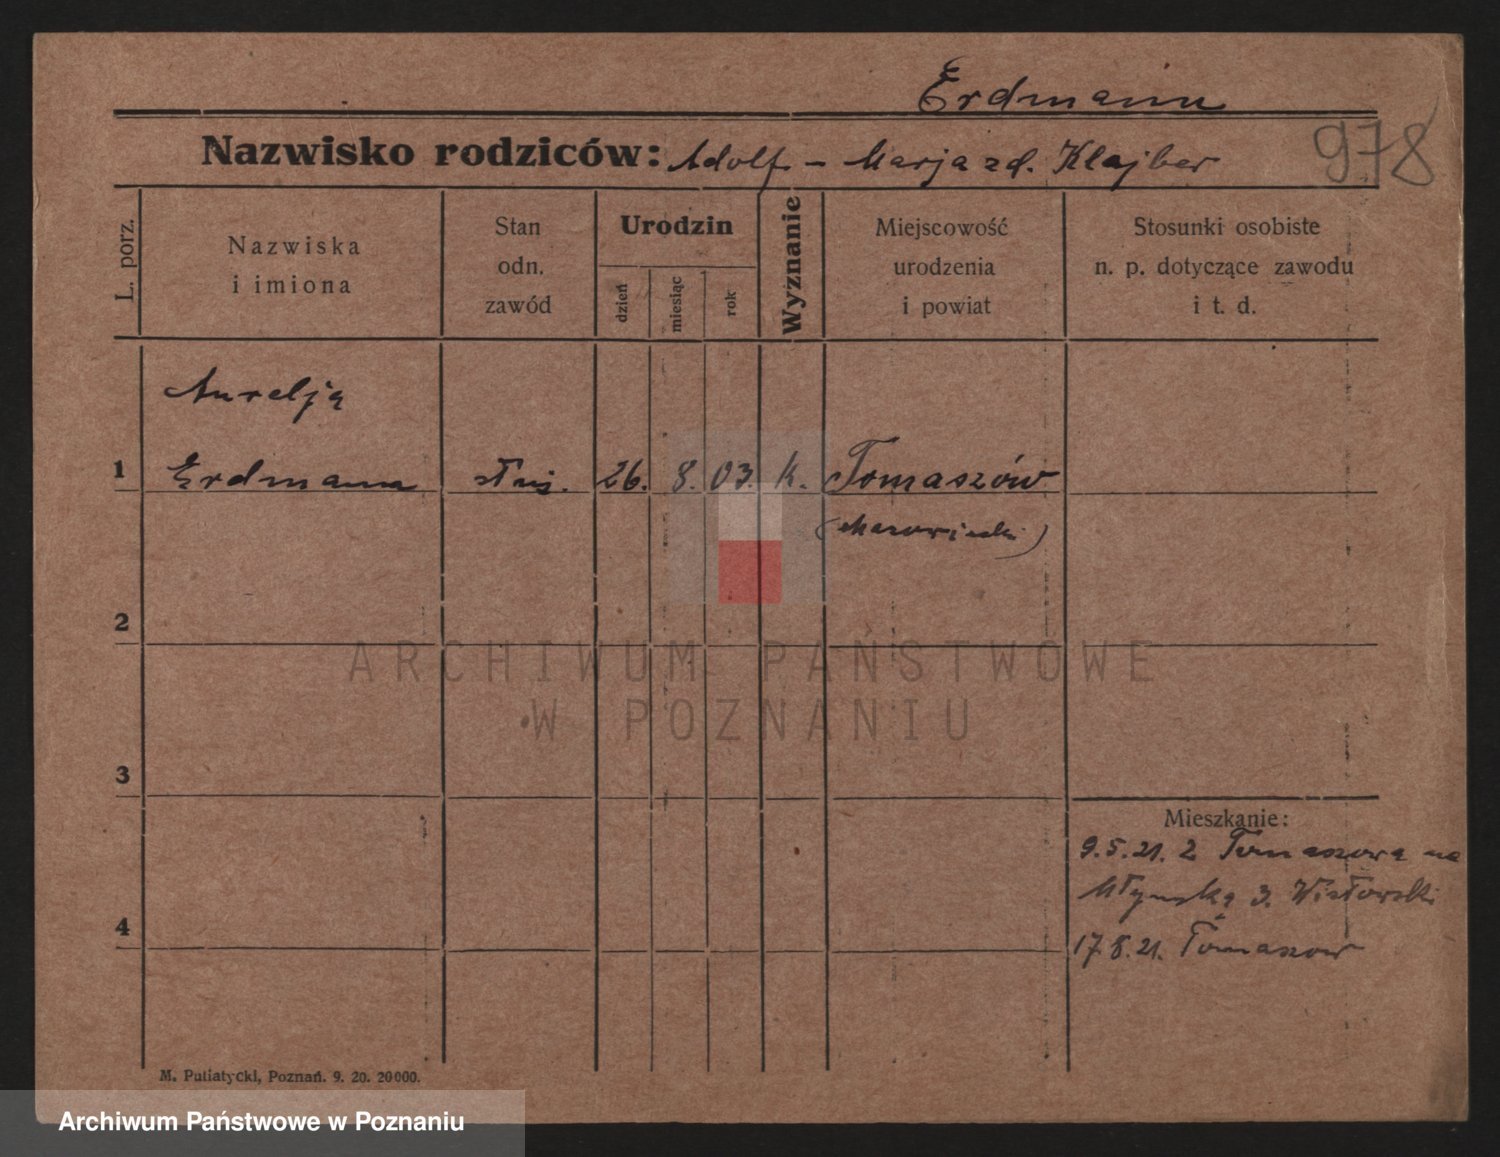 Erdmann
Nazwisko rodziców: Adolf – Marja zd. Klajber
978
L. porz.
Nazwiska
i imiona
Stan
odn.
zawód
Urodzin
dzień
miesiąc
rok
Wyznanie
Miejscowość
urodzenia
i powiat
Stosunki osobiste
n. p. dotyczące zawodu
i t. d.
Aurelja
1 Erdmann służ. 26. 8. 03. k. Tomaszów
(Mazowiecki)
2
3
4
Mieszkanie:
9.5.21. z Tomaszowa na
Młyńską 3.
17.8.21. Tomaszow
M. Putiatycki, Poznań. 9. 20. 20000.
ARCHIWUM PAŃSTWOWE
W POZNANIU
Archiwum Państwowe w Poznaniu